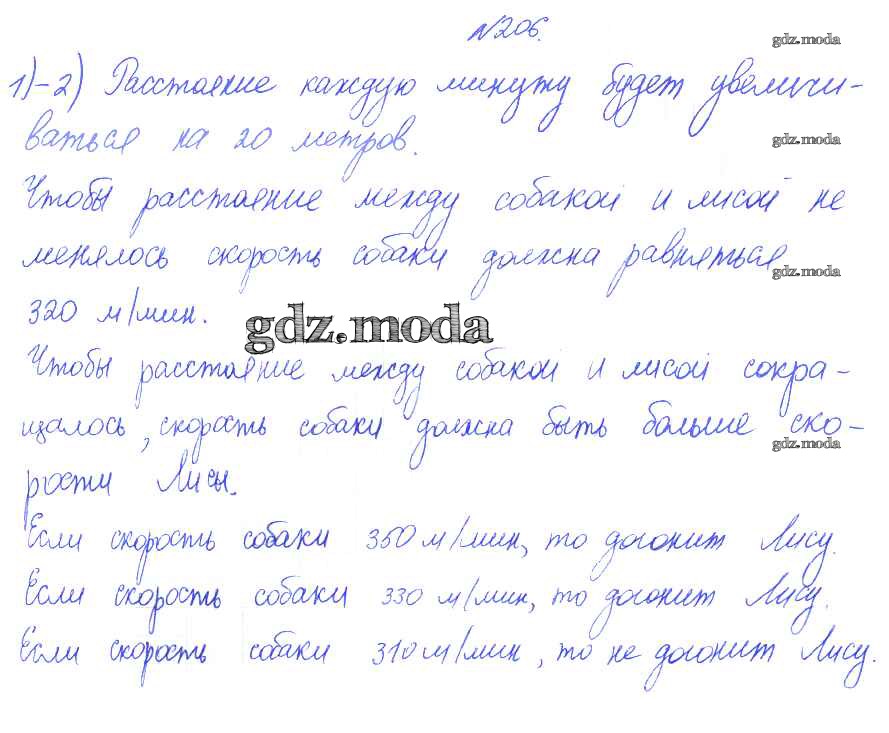 №206.
gdz.moda
1)-2) Расстояние каждую минуту будет увеличи-
ваться на 20 метров.
gdz.moda
Чтобы расстояние между собакой и лисой не
менялось скорость собаки должна равняться
gdz.moda
320 м/мин.
gdz.moda
Чтобы расстояние между собакой и лисой сокра-
щалось, скорость собаки должна быть больше ско-
gdz.moda
рости Лисы.
Если скорость собаки 350 м/мин, то догонит Лису.
Если скорость собаки 330 м/мин, то догонит Лису.
Если скорость собаки 310 м/мин, то не догонит Лису.